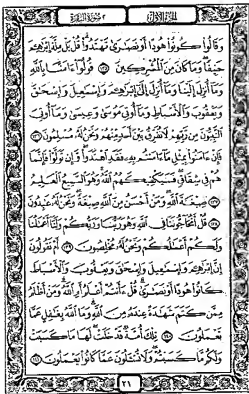 الجزء الأول ٢ سورة البقرة
وَقَالُوا۟ كُونُوا۟ هُودًا أَوْ نَصَٰرَىٰ تَهْتَدُوا۟ قُلْ بَلْ مِلَّةَ إِبْرَٰهِـۧمَ
حَنِيفًا وَمَا كَانَ مِنَ ٱلْمُشْرِكِينَ ١٣٥ قُولُوٓا۟ ءَامَنَّا بِٱللَّهِ
وَمَآ أُنزِلَ إِلَيْنَا وَمَآ أُنزِلَ إِلَىٰٓ إِبْرَٰهِـۧمَ وَإِسْمَٰعِيلَ وَإِسْحَٰقَ
وَيَعْقُوبَ وَٱلْأَسْبَاطِ وَمَآ أُوتِىَ مُوسَىٰ وَعِيسَىٰ وَمَآ أُوتِىَ
ٱلنَّبِيُّونَ مِن رَّبِّهِمْ لَا نُفَرِّقُ بَيْنَ أَحَدٍ مِّنْهُمْ وَنَحْنُ لَهُۥ مُسْلِمُونَ ١٣٦
فَإِنْ ءَامَنُوا۟ بِمِثْلِ مَآ ءَامَنتُم بِهِۦ فَقَدِ ٱهْتَدَوا۟ وَّإِن تَوَلَّوْا۟ فَإِنَّمَا
هُمْ فِى شِقَاقٍ فَسَيَكْفِيكَهُمُ ٱللَّهُ وَهُوَ ٱلسَّمِيعُ ٱلْعَلِيمُ
١٣٧ صِبْغَةَ ٱللَّهِ وَمَنْ أَحْسَنُ مِنَ ٱللَّهِ صِبْغَةً وَنَحْنُ لَهُۥ عَٰبِدُونَ
١٣٨ قُلْ أَتُحَآجُّونَنَا فِى ٱللَّهِ وَهُوَ رَبُّنَا وَرَبُّكُمْ وَلَنَآ أَعْمَٰلُنَا
وَلَكُمْ أَعْمَٰلُكُمْ وَنَحْنُ لَهُۥ مُخْلِصُونَ ١٣٩ أَمْ تَقُولُونَ
إِنَّ إِبْرَٰهِـۧمَ وَإِسْمَٰعِيلَ وَإِسْحَٰقَ وَيَعْقُوبَ وَٱلْأَسْبَاطَ
كَانُوا۟ هُودًا أَوْ نَصَٰرَىٰ قُلْ ءَأَنتُمْ أَعْلَمُ أَمِ ٱللَّهُ وَمَنْ أَظْلَمُ
مِمَّن كَتَمَ شَهَٰدَةً عِندَهُۥ مِنَ ٱللَّهِ وَمَا ٱللَّهُ بِغَٰفِلٍ عَمَّا
تَعْمَلُونَ ١٤٠ تِلْكَ أُمَّةٌ قَدْ خَلَتْ لَهَا مَا كَسَبَتْ
وَلَكُم مَّا كَسَبْتُمْ وَلَا تُسْـَٔلُونَ عَمَّا كَانُوا۟ يَعْمَلُونَ ١٤١
٢١